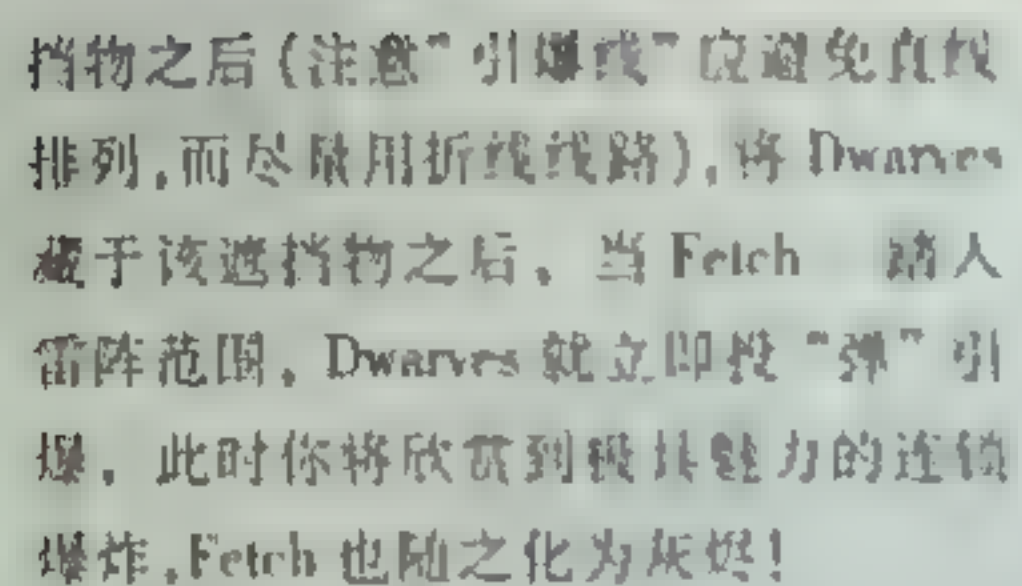 挡物之后(注意“引爆线”应避免直线
排列,而尽量用折线线路),将 Dwarves
藏于该遮挡物之后。当 Fetch 踏入
雷阵范围。Dwarves 就立即投“弹”引
爆。此时你将欣赏到极具魅力的连锁
爆炸,Fetch 也随之化为灰烬!